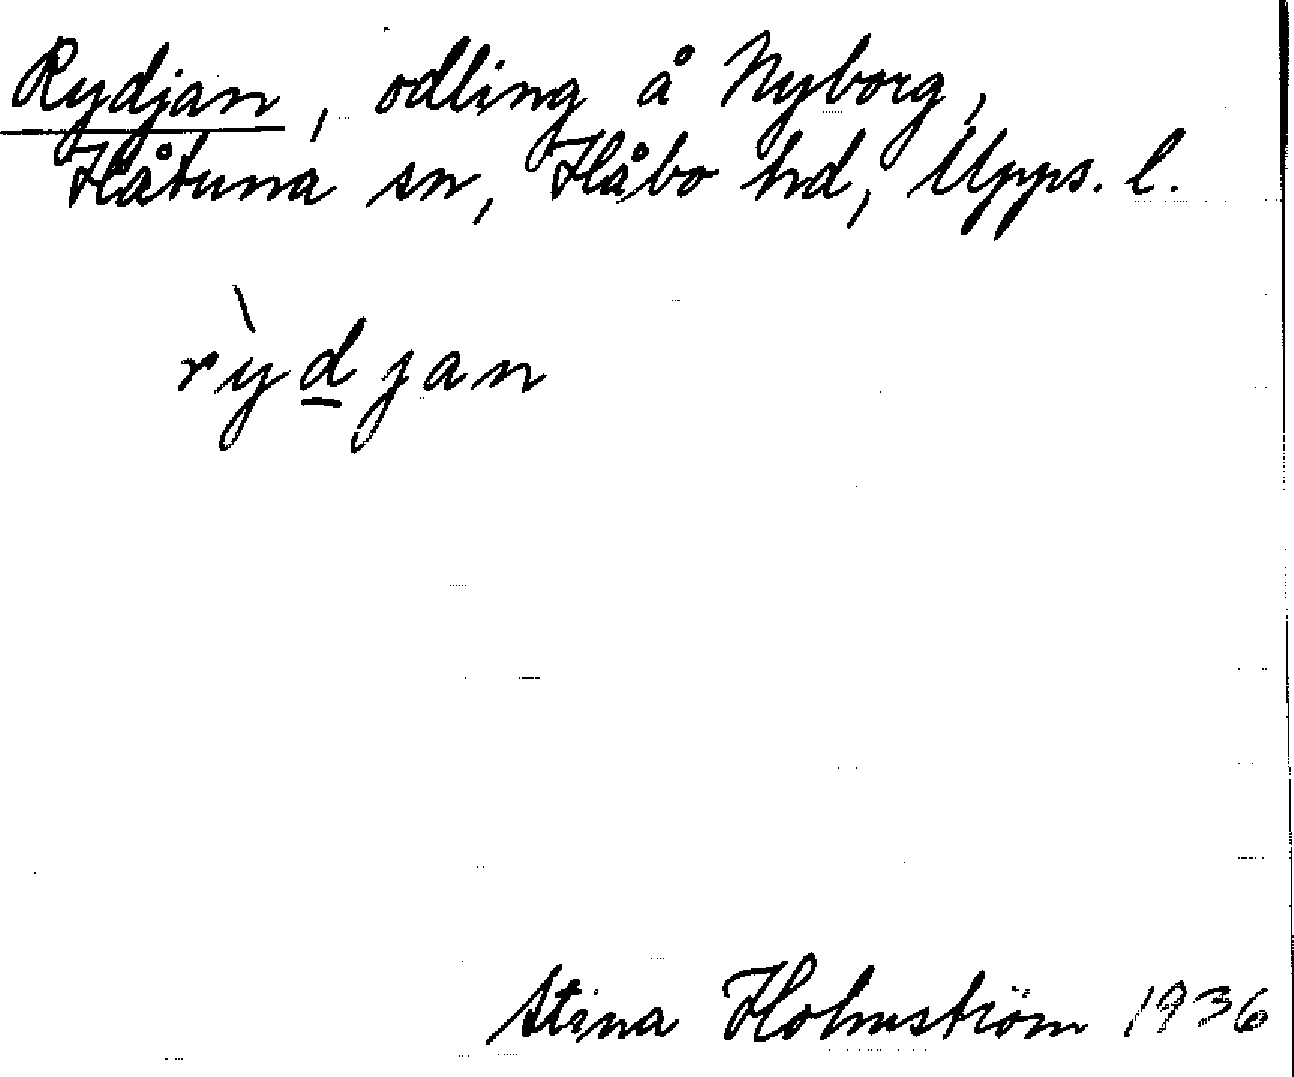 Rydjan, odling å Nyborg,
Håtuna sn, Håbo hd, Upps. l.
rỳdjan
Stina Holmström 1936